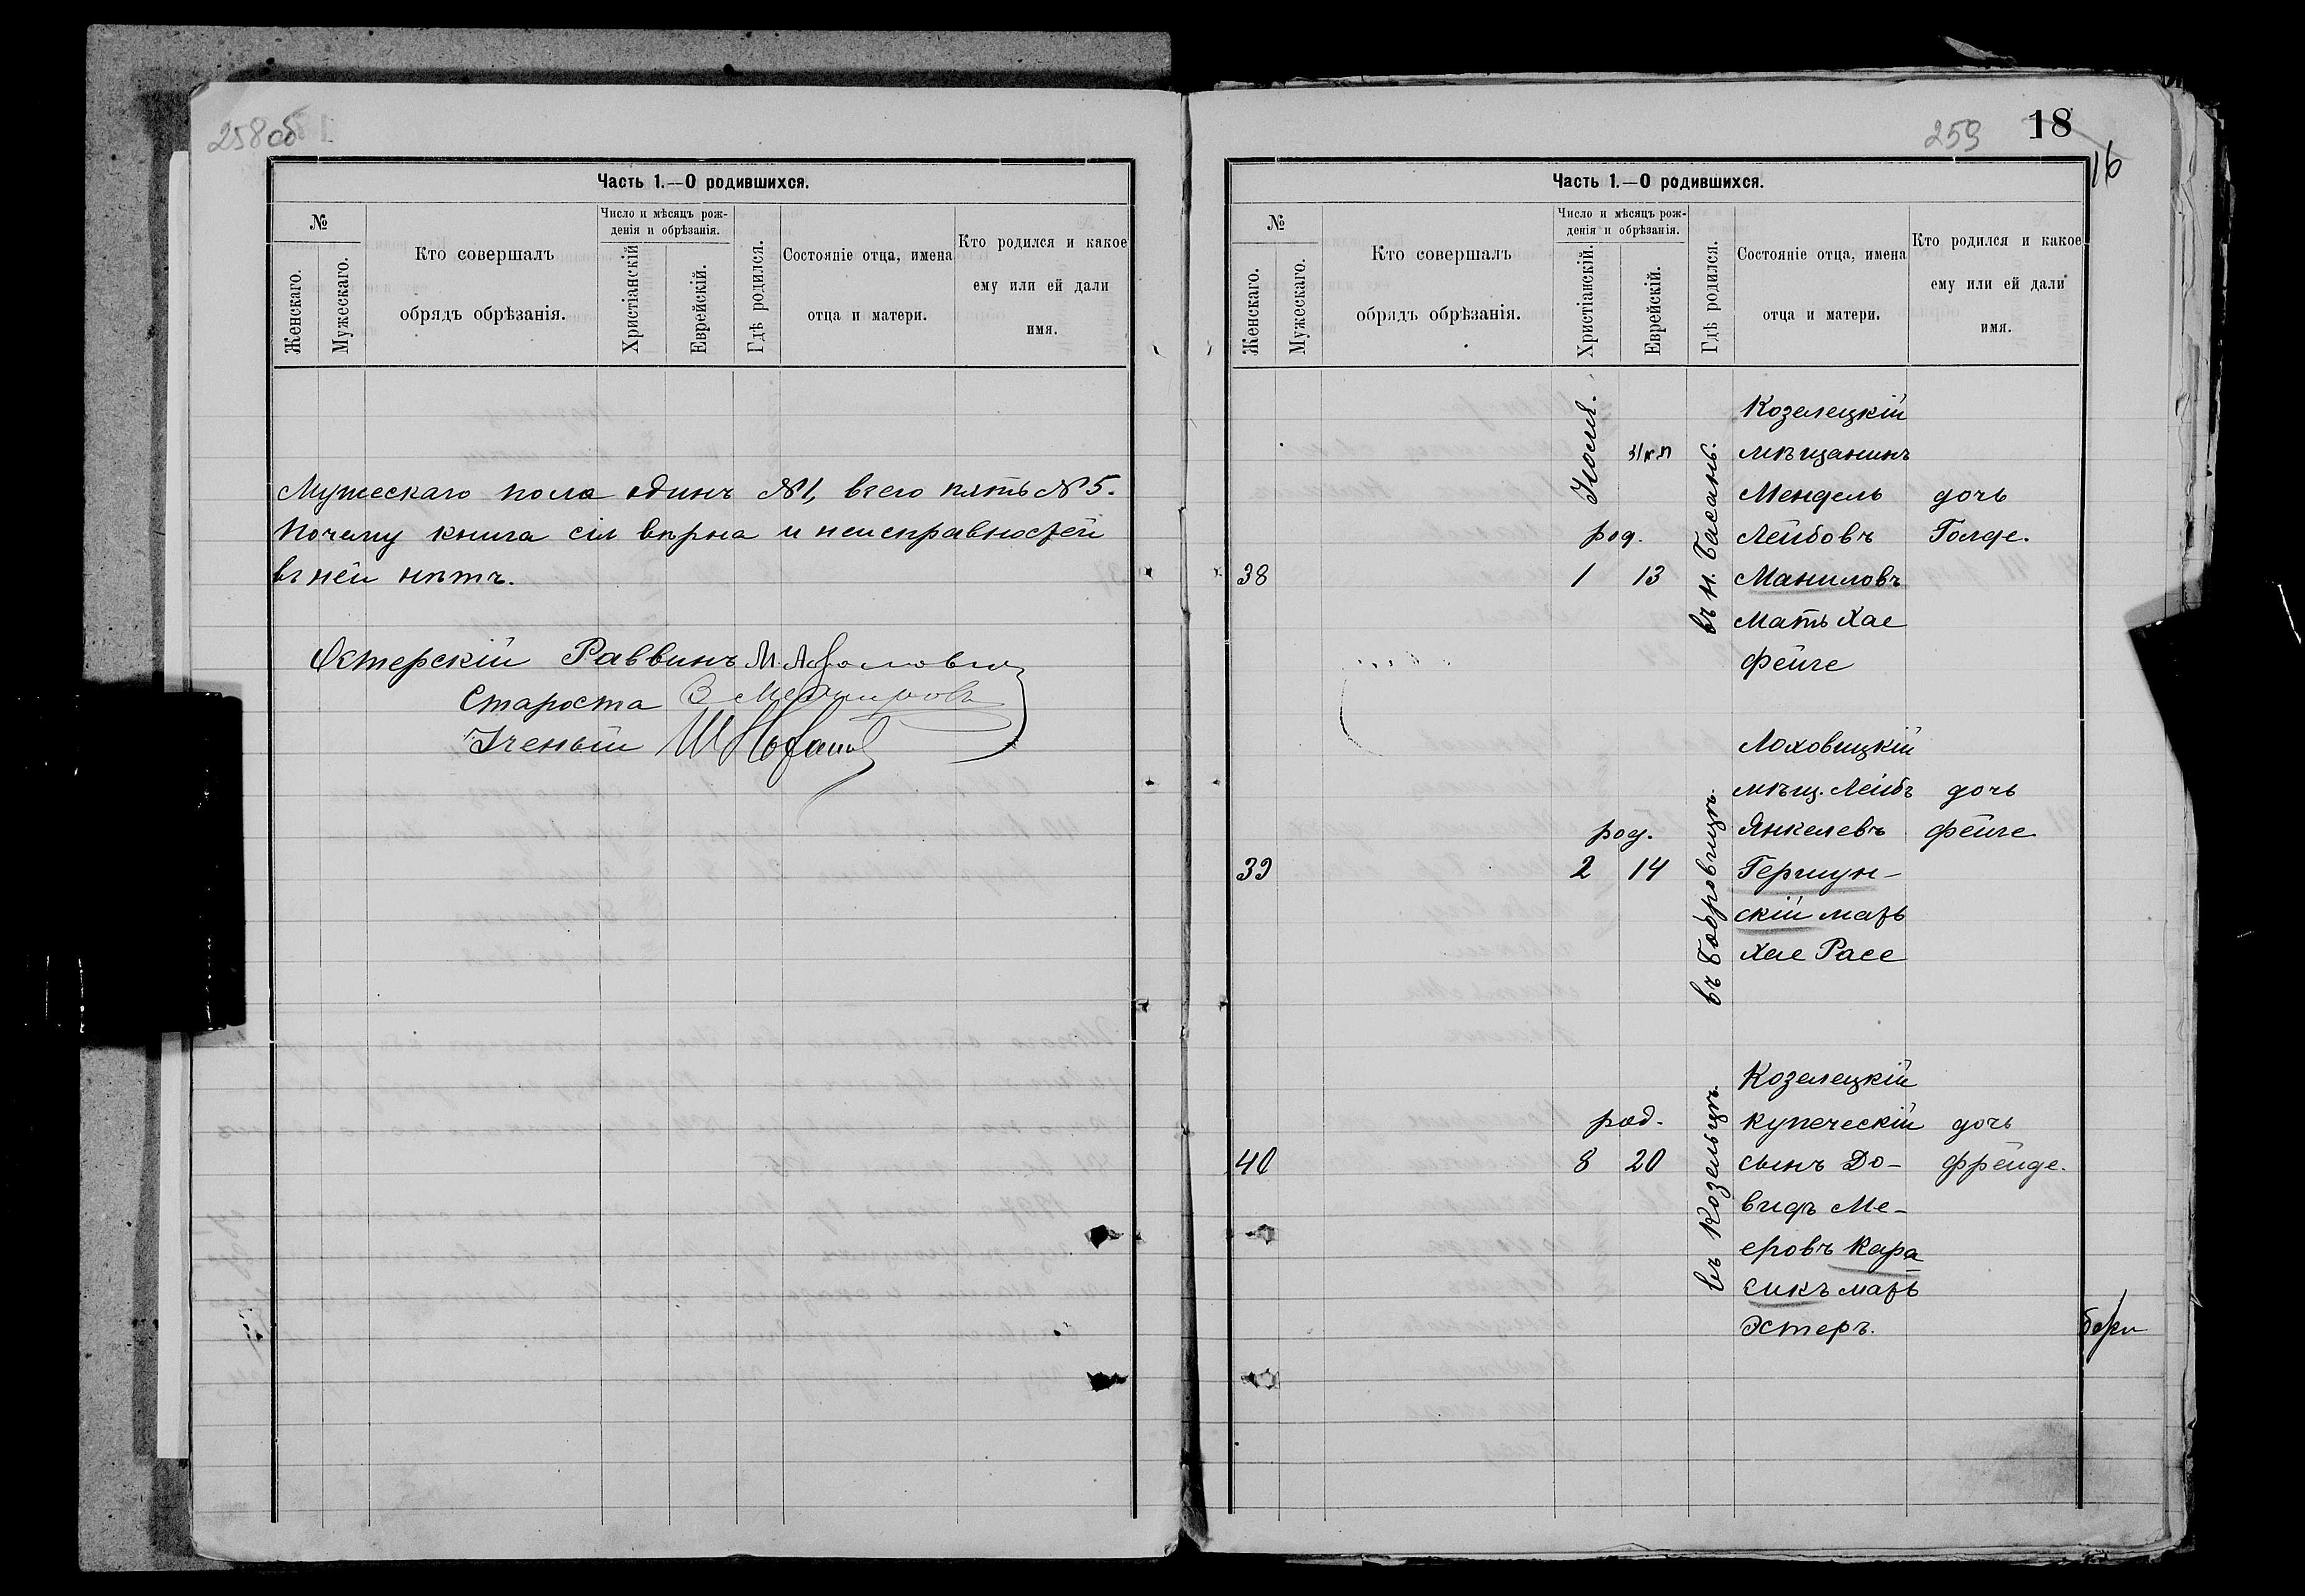 258об
Часть 1.—О родившихся.
№
Женскаго.
Мужескаго.
Кто совершалъ
обрядъ обрѣзанія.
Число и мѣсяцъ рож-
денія и обрѣзанія.
Христіанскій
Еврейскій.
Гдѣ родился.
Состояніе отца, имена
отца и матери.
Кто родился и какое
ему или ей дали
имя.
Мужескаго пола одинъ №1, всего пять №5.
Почему книга сія вѣрна и неисправностей
въ ней нѣтъ.
Остерскій Раввинъ М.
Староста
Ученый
259 18
16
Часть 1.—О родившихся.
№
Женскаго.
Мужескаго.
Кто совершалъ
обрядъ обрѣзанія.
Число и мѣсяцъ рож-
денія и обрѣзанія.
Христіанскій.
Еврейскій.
Гдѣ родился.
Состояніе отца, имена
отца и матери.
Кто родился и какое
ему или ей дали
имя.
38
Іюля.
род.
1 13
въ н. Басань.
Козелецкій
мѣщанинъ
Мендель
Лейбовъ
Маниловъ
Мать Хае
Фейге
дочь
Голде.
39
род.
2 14
въ Бобровицѣ.
Лоховицкій
мѣщ. Лейбъ
Янкелевъ
Гершун-
скій мать
Хае Расе
дочь
Фейге
40
род.
8 20
въ Козельцѣ.
Козелецкій
купеческій
сынъ До-
видъ Ме-
еровъ Кара
сикъ мать
Эстеръ.
дочь
Фрейде.